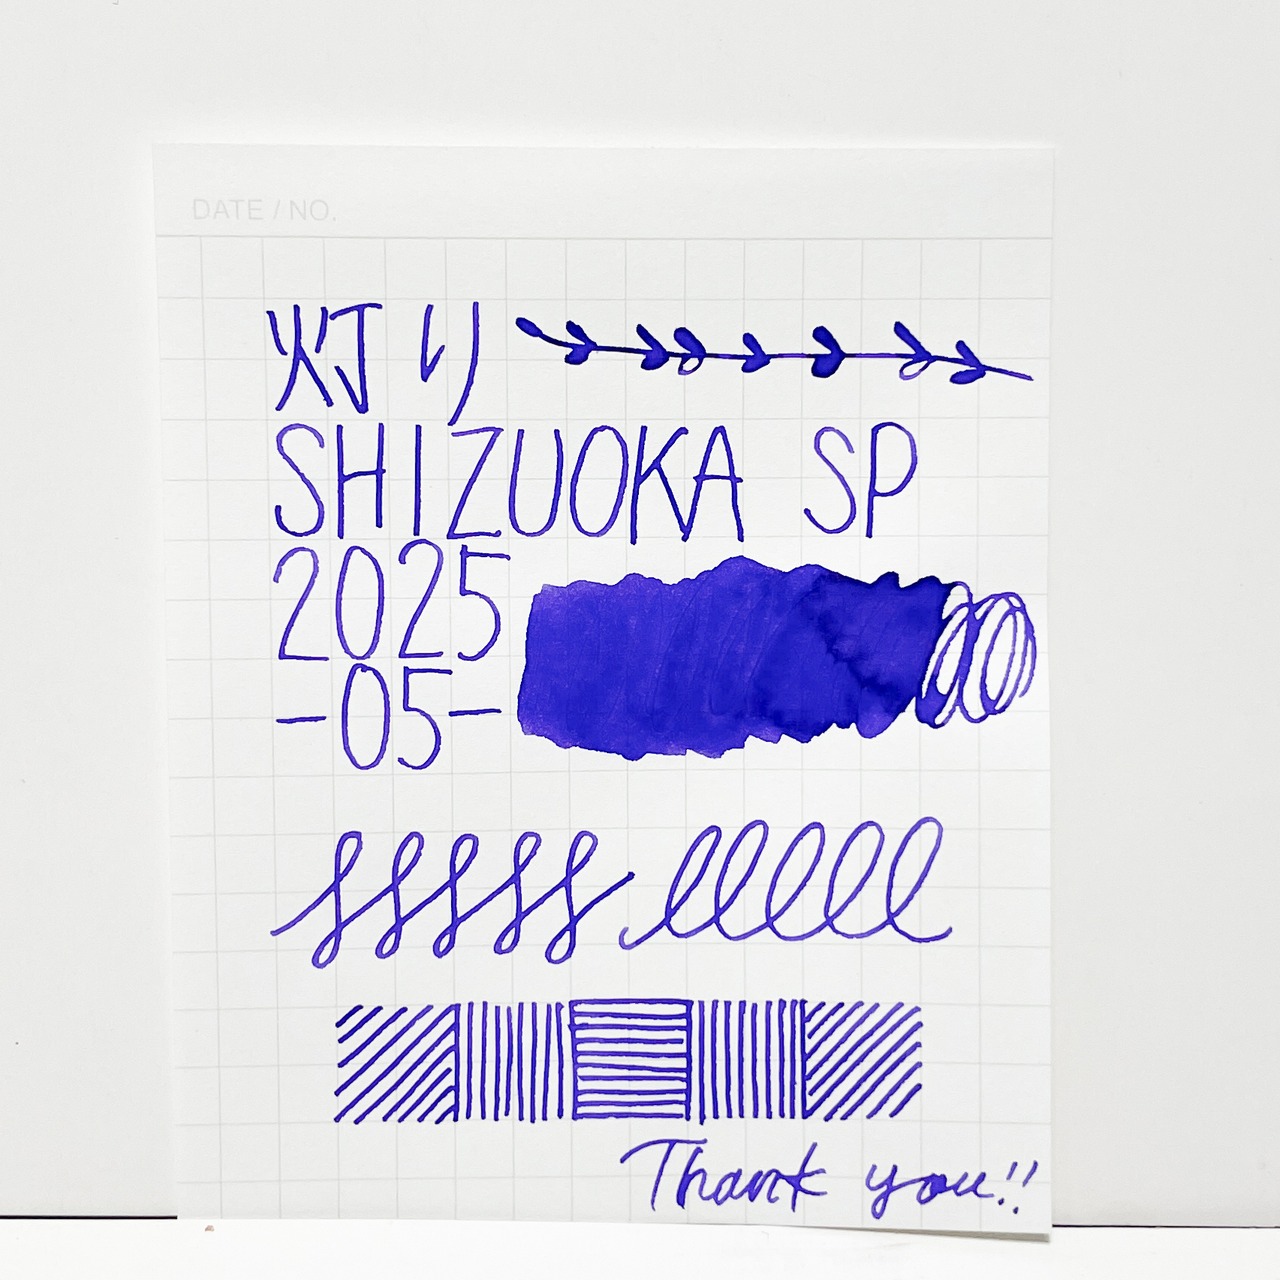 DATE / NO.
灯り
SHIZUOKA SP
2025
-05-
Thank you!!